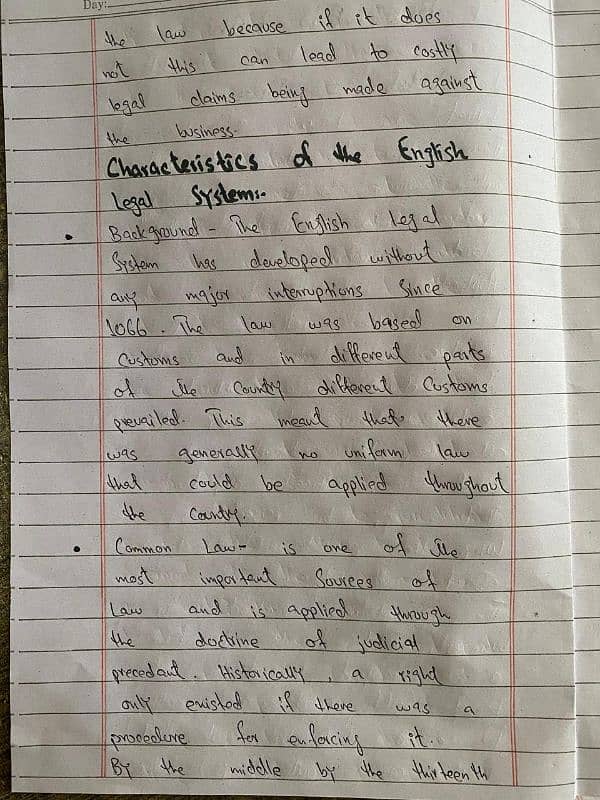 Day:
the law because if it does
not this can lead to costly
legal claims being made against
the business.
Characteristics of the English
Legal System:-
• Background - The English legal
System has developed without
any major interruptions Since
1066. The law was based on
Customs and in different parts
of the Country different Customs
prevailed. This meant that there
was generally no uniform law
that could be applied throughout
the Country.
• Common Law - is one of the
most important Sources of
Law and is applied through
the doctrine of judicial
precedant. Historically, a right
only existed if there was a
procedure for enforcing it.
By the middle by the thirteenth